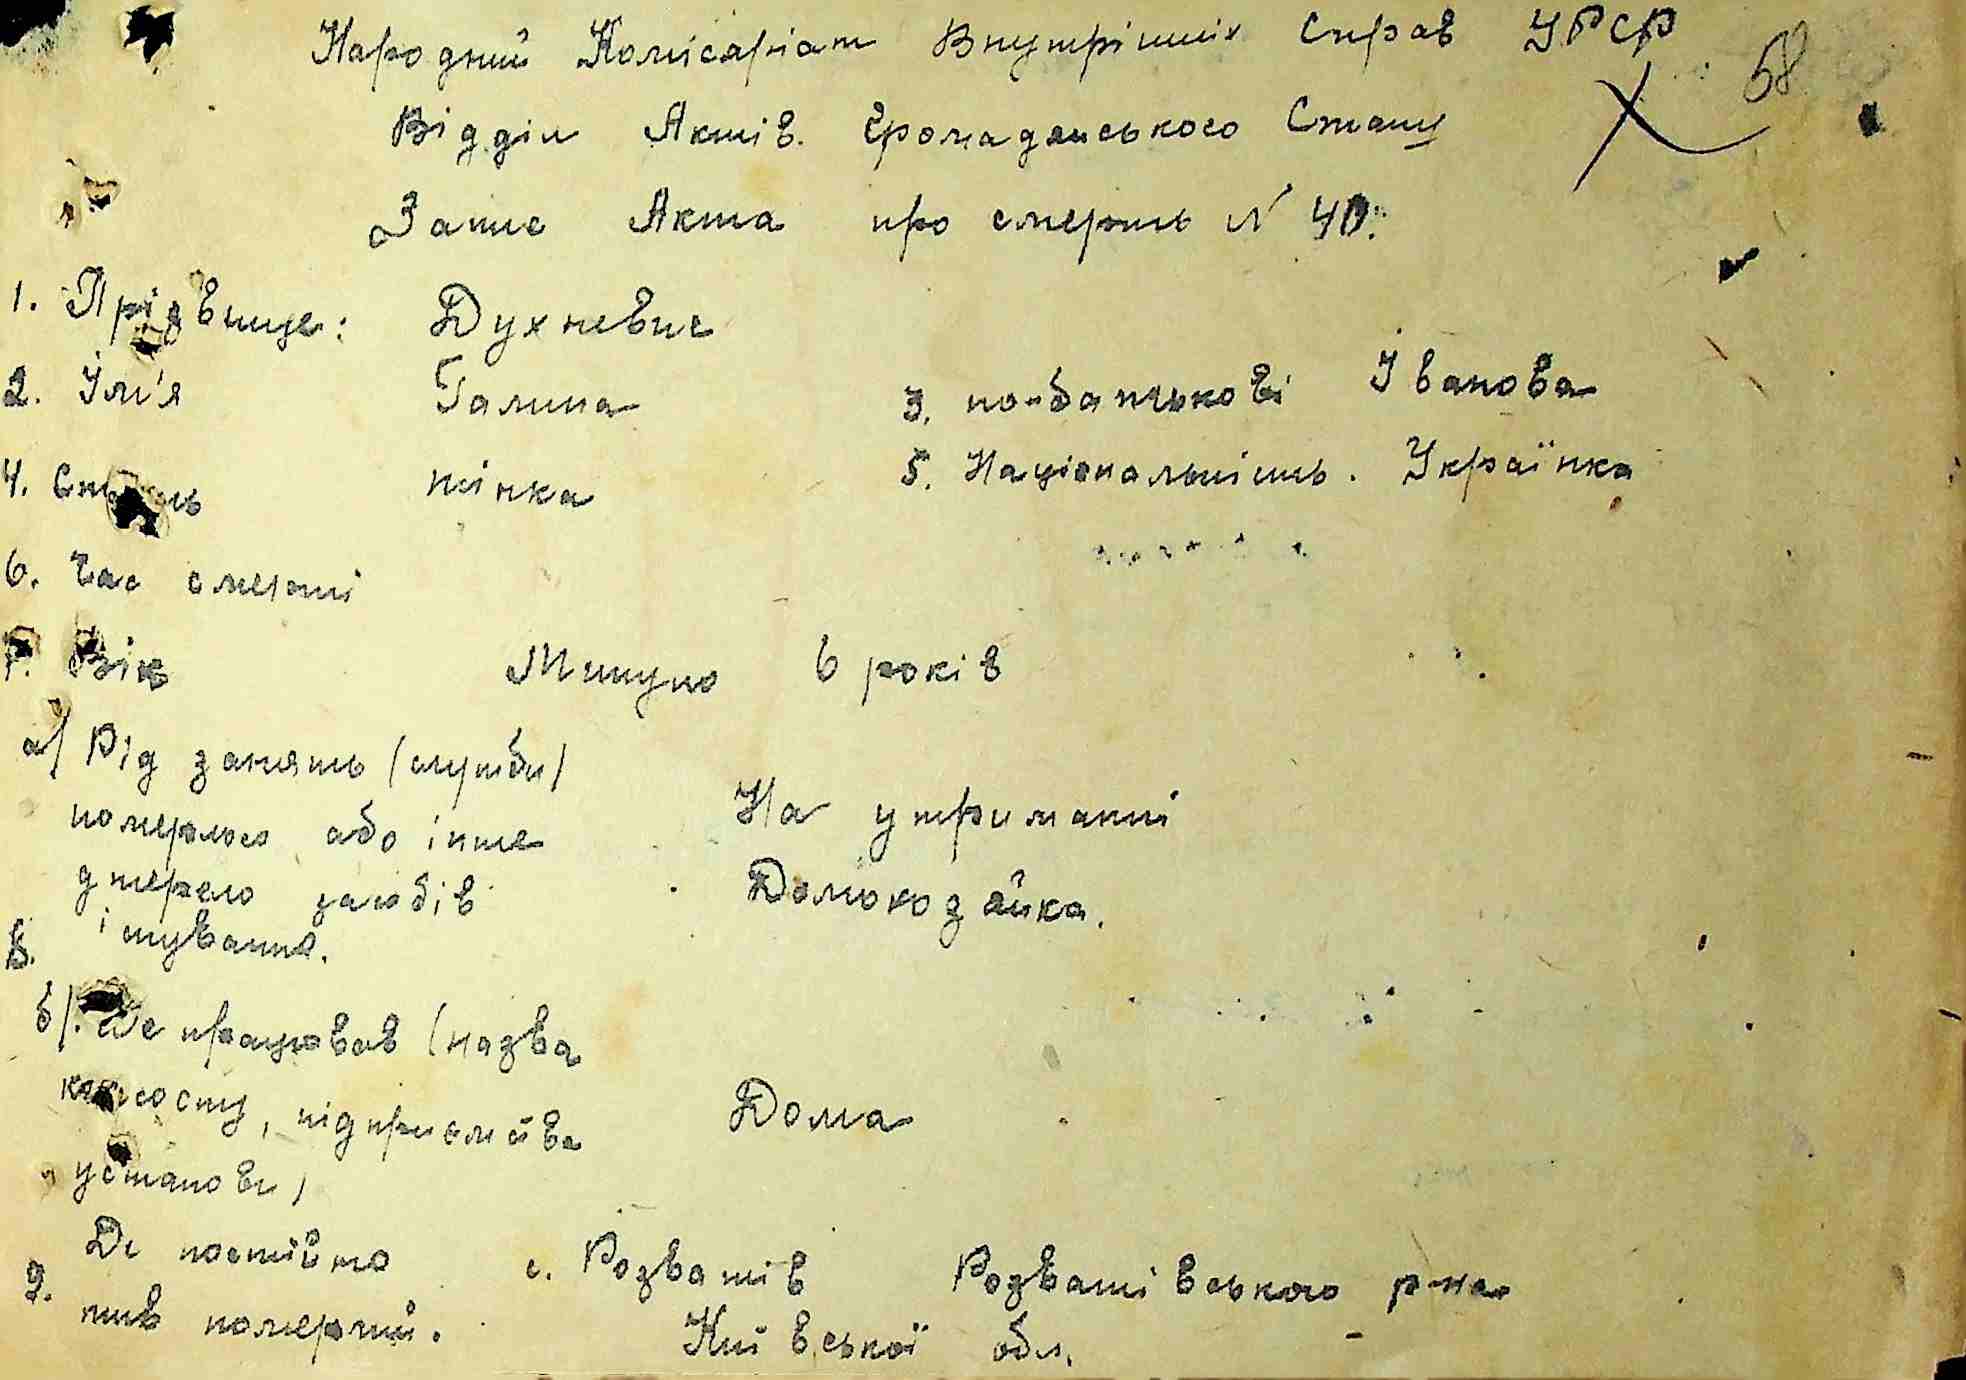 Народний Комісаріат Внутрішніх Справ УРСР
58
Відділ Актів Громадянського Стану
Запис Акта про смерть N 40.
1. Прізвище: Духневис
2. Ім'я Галина 3. по-батькові Іванова
4. Стать жінка 5. Національність. Українка
6. Час смерті
7. Вік Минуло 6 років
а) Рід занять (служби)
померлого або інше На утриманні
джерело засобів Домохозяйка.
8. існування.
б). Де працював (назва
колгоспу, підприємства Дома
установи)
Де постійно с. Розважів Розважівського р-на
9. жив померший. Київської обл.